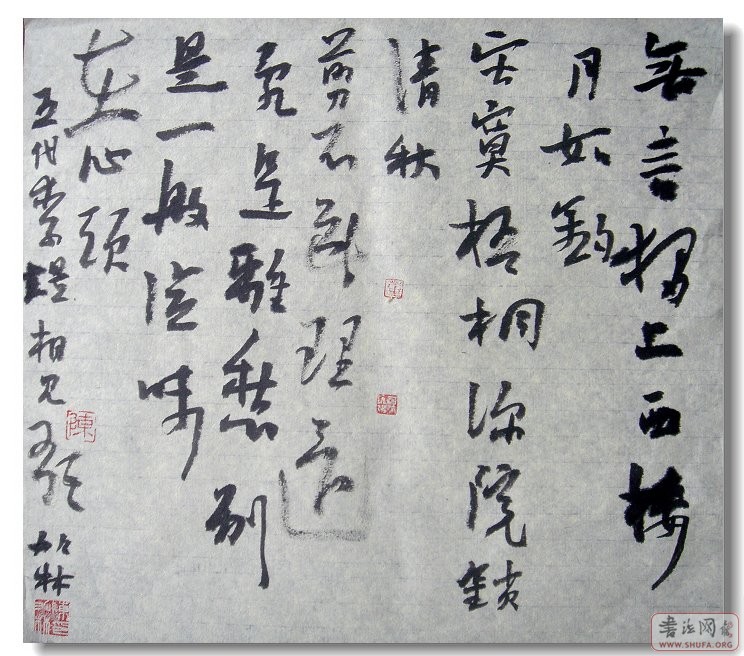 無言獨上西樓
月如鈎
寂寞梧桐深院鎖
清秋
剪不斷理還
亂是離愁別
是一般滋味
在心頭
五代李煜相见歡
陳
書法网
WWW.SHUFA.ORG